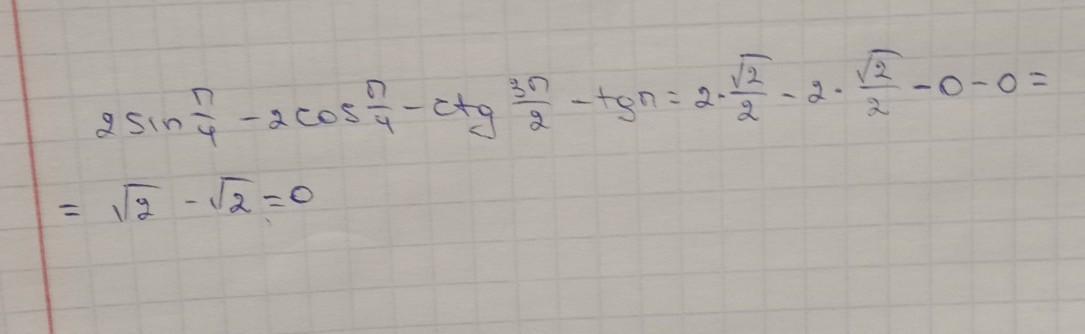 2 sin π/4 - 2 cos π/4 - ctg 3π/2 - tg π = 2 · √2/2 - 2 · √2/2 - 0 - 0 =
= √2 - √2 = 0